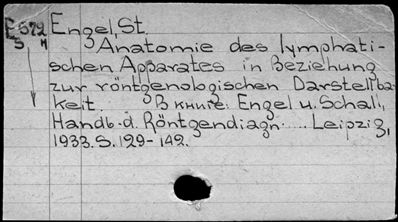 E 579 Engel, St.
S M Anatomie des lymphati-
schen Apparates in Beziehung
zur röntgenologischen Darstellba-
keit. В книге: Engel u. Schall,
Handb. d. Röntgendiagn..... Leipzig,
1933. S. 129-142.